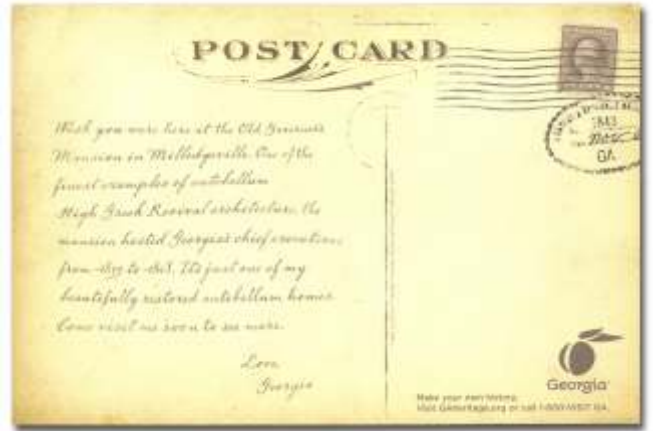 POST CARD
1843
Nov
GA
Wish you were here at the Old Governor's
Mansion in Milledgeville. One of the
finest examples of antebellum
High Greek Revival architecture, the
mansion hosted Georgia's chief executives
from to 1868. It's just one of my
beautifully restored antebellum homes.
Come visit me soon to see more.
Love
Georgia
Georgia
Make your own history.
Visit GAheritage.org or call 1-800-VISIT GA.